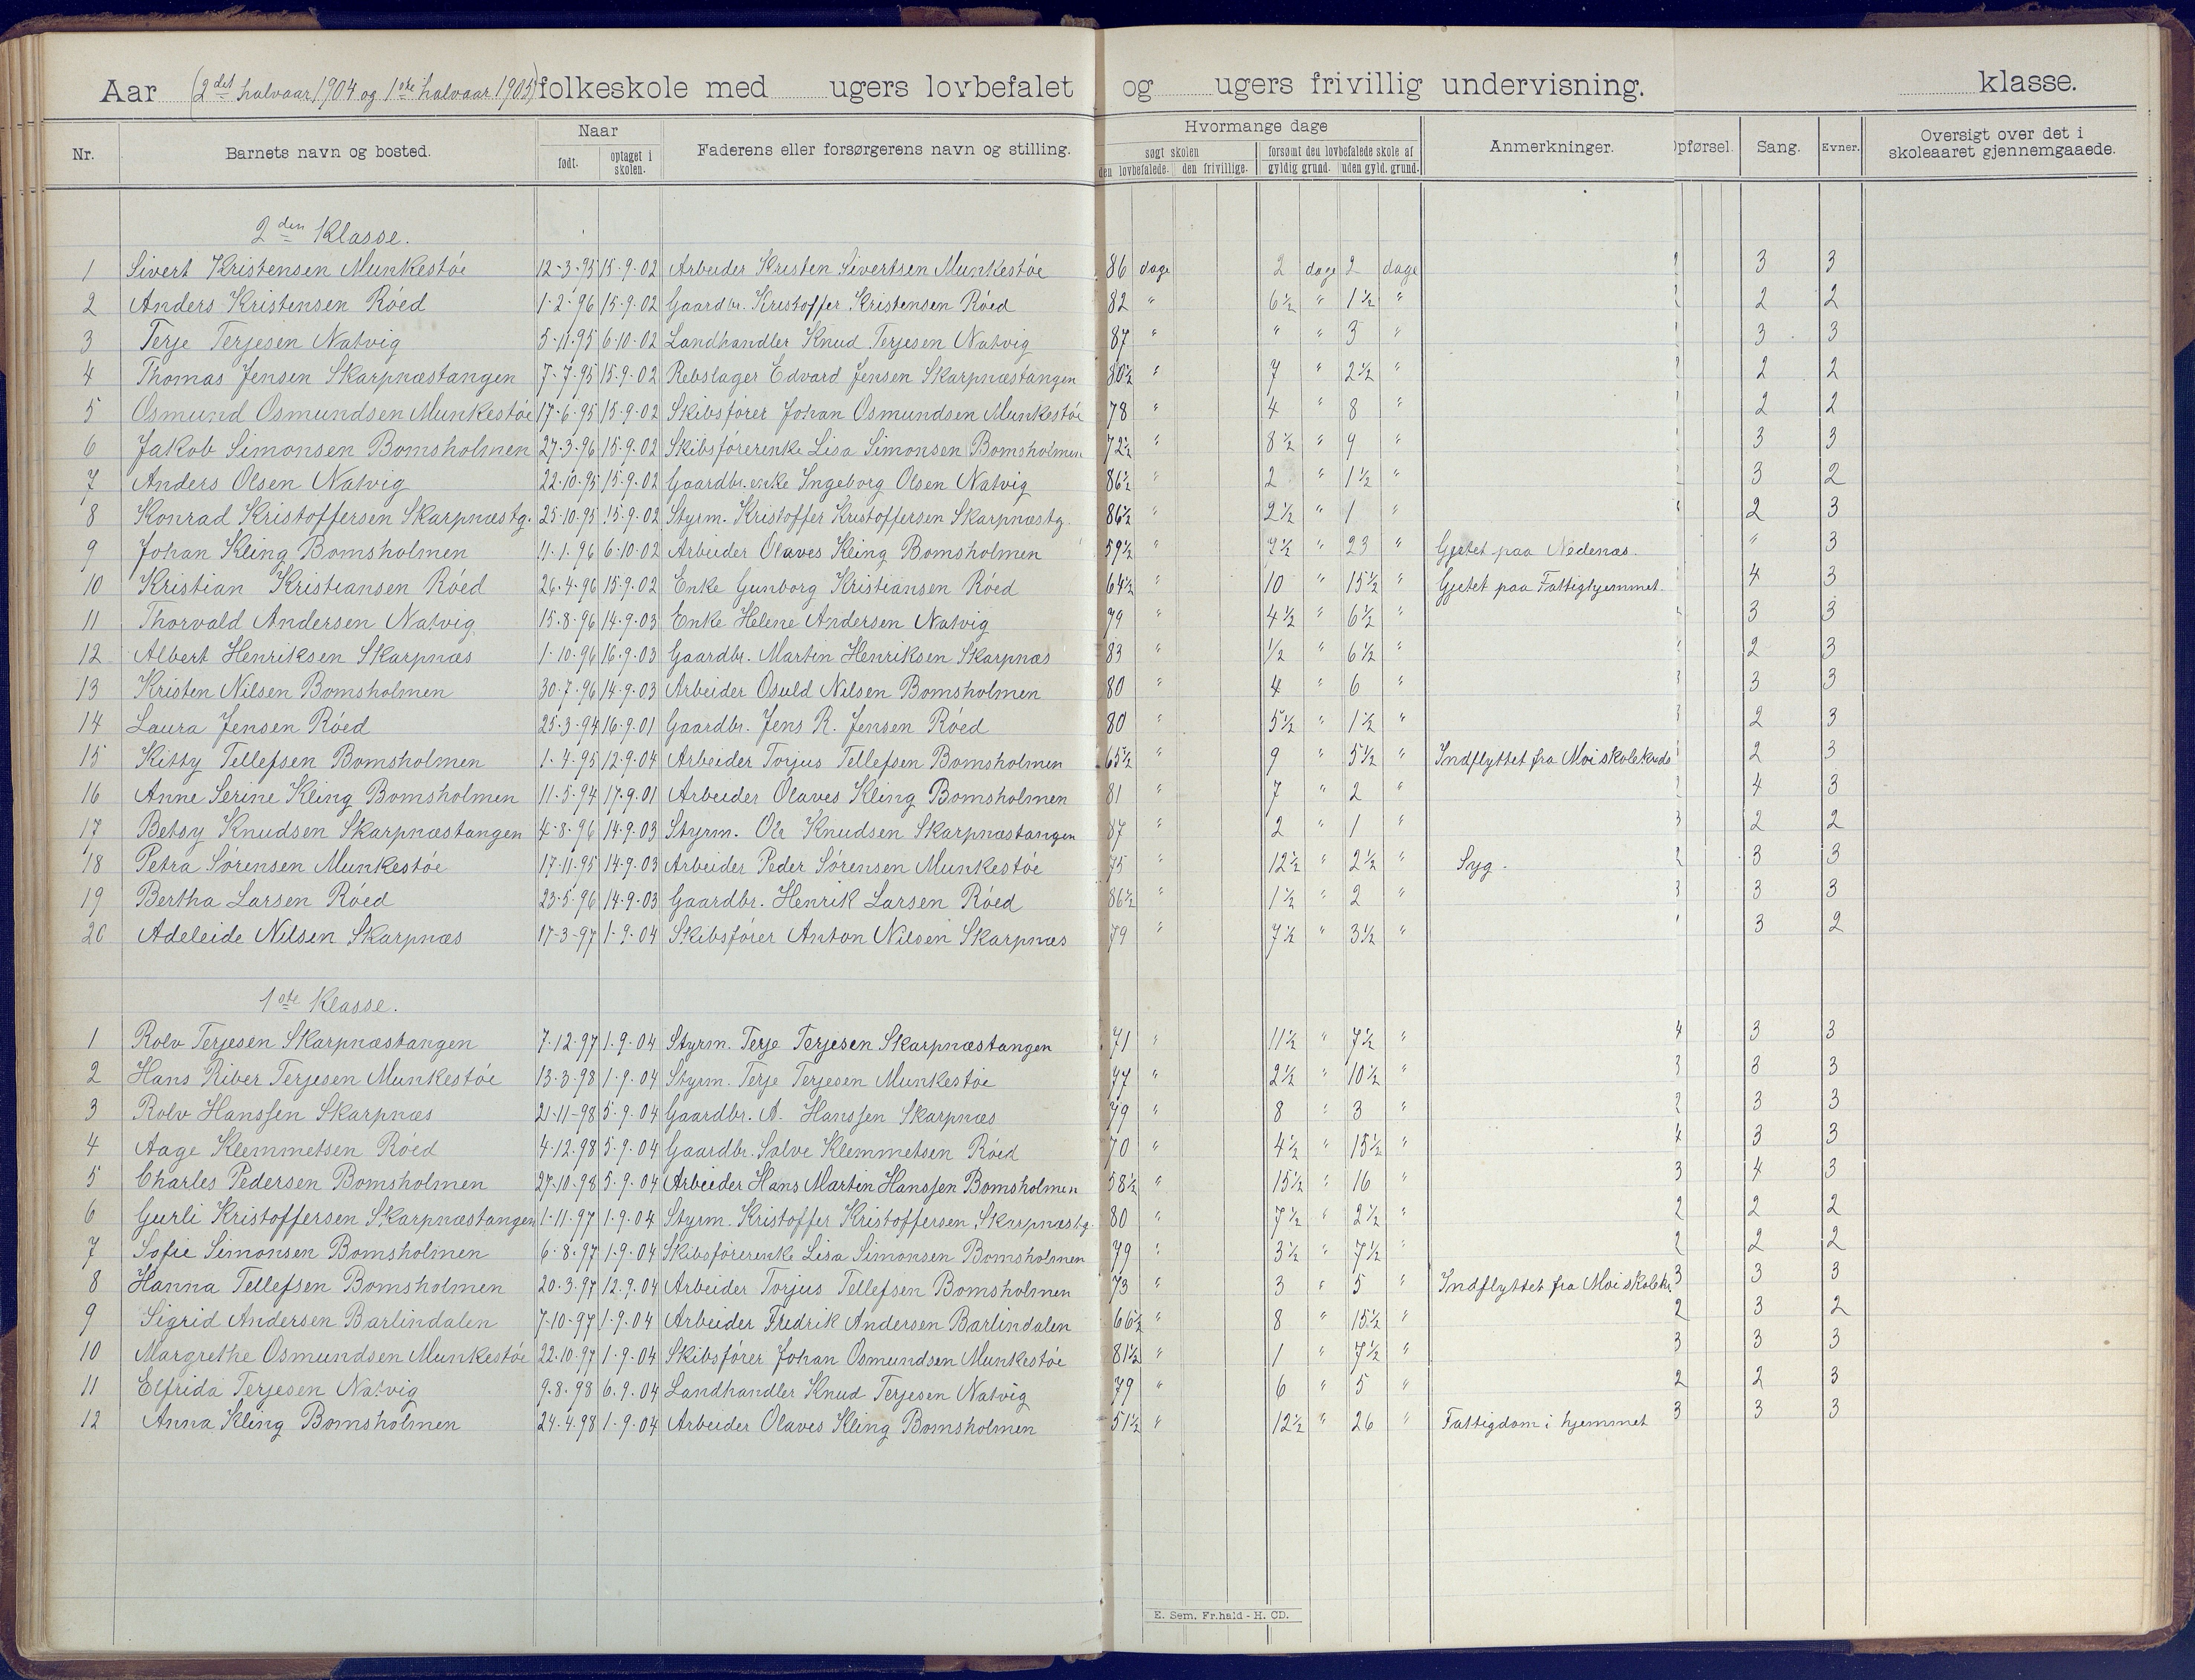 Aar (2det halvaar 1904 og 1ste halvaar 1905) folkeskole med ugers lovbefalet og ugers frivillig undervisning. klasse.
Nr. Barnets navn og bosted. Naar født. optaget i skolen. Faderens eller forsørgerens navn og stilling. Hvormange dage søgt skolen den lovbefalede. den frivillige. forsømt den lovbefalede skole af gyldig grund. uden gyld. grund. Anmerkninger. Opførsel. Sang. Evner. Oversigt over det i skoleaaret gjennemgaaede.
2den Klasse.
1 Sivert Kristensen Munkestøe 12-3-95 15-9-02 Arbeider Kristen Sivertsen Munkestøe 86 dage 2 dage 2 dage 3 3
2 Anders Kristensen Røed 1-2-96 15-9-02 Gaardbr. Kristoffer Kristensen Røed 82 " 6½ " 1½ " 2 2
3 Terje Terjesen Natvig 5-11-95 6-10-02 Landhandler Knud Terjesen Natvig 87 " " " 3 " 3 3
4 Thomas Jensen Skarpnæstangen 7-7-95 15-9-02 Rebslager Edvard Jensen Skarpnæstangen 80½ " 7 " 2½ " 2 2
5 Osmund Osmundsen Munkestøe 17-6-95 15-9-02 Skibsfører Johan Osmundsen Munkestøe 78 " 4 " 8 " 2 2
6 Jakob Simonsen Bomsholmen 27-3-96 15-9-02 Skibsførerenke Lisa Simonsen Bomsholmen 72½ " 8½ " 9 " 3 3
7 Anders Olsen Natvig 22-10-95 15-9-02 Gaardbr.enke Ingeborg Olsen Natvig 86½ " 2 " 1½ " 3 2
8 Konrad Kristoffersen Skarpnæstg. 25-10-95 15-9-02 Styrm. Kristoffer Kristoffersen Skarpnæstg. 86½ " 2½ " 1 " 2 3
9 Johan Kling Bomsholmen 11-1-96 6-10-02 Arbeider Olaves Kling Bomsholmen 59½ " 7½ " 23 " Gjetet paa Nedenæs. " 3
10 Kristian Kristiansen Røed 26-4-96 15-9-02 Enke Gunborg Kristiansen Røed 64½ " 10 " 15½ " Gjetet paa Fattighjemmet. 4 3
11 Thorvald Andersen Natvig 15-8-96 14-9-03 Enke Helene Andersen Natvig 79 " 4½ " 6½ " 3 3
12 Albert Henriksen Skarpnæs 1-10-96 16-9-03 Gaardbr. Martin Henriksen Skarpnæs 83 " ½ " 6½ " 2 3
13 Kristen Nilsen Bomsholmen 30-7-96 14-9-03 Arbeider Osuld Nilsen Bomsholmen 80 " 4 " 6 " 3 3 3
14 Laura Jensen Røed 25-3-94 16-9-01 Gaardbr. Jens R. Jensen Røed 80 " 5½ " 1½ " 3 2 3
15 Kitty Tellefsen Bomsholmen 1-4-95 12-9-04 Arbeider Torjus Tellefsen Bomsholmen 65½ " 9 " 5½ " Indflyttet fra Moi skolekreds 2 3
16 Anne Serine Kling Bomsholmen 11-5-94 17-9-01 Arbeider Olaves Kling Bomsholmen 81 " 7 " 2 " 2 4 3
17 Betsy Knudsen Skarpnæstangen 4-8-96 14-9-03 Styrm. Ole Knudsen Skarpnæstangen 87 " 2 " 1 " 3 2 2
18 Petra Sørensen Munkestøe 17-11-95 14-9-03 Arbeider Peder Sørensen Munkestøe 75 " 12½ " 2½ " Syg. 2 3 3
19 Bertha Larsen Røed 23-5-96 14-9-03 Gaardbr. Henrik Larsen Røed 86½ " 1½ " 2 " 3 3 3
20 Adeleide Nilsen Skarpnæs 17-3-97 1-9-04 Skibsfører Anton Nilsen Skarpnæs 79 " 7½ " 3½ " 3 2
1ste Klasse.
1 Rolv Terjesen Skarpnæstangen 7-12-97 1-9-04 Styrm. Terje Terjesen Skarpnæstangen 71 " 11½ " 7½ " 4 3 3
2 Hans Riber Terjesen Munkestøe 13-3-98 1-9-04 Styrm. Terje Terjesen Munkestøe 77 " 2½ " 10½ " 3 3 3
3 Rolv Hanssen Skarpnæs 21-11-98 5-9-04 Gaardbr. A. Hanssen Skarpnæs 79 " 8 " 3 " 2 3 3
4 Aage Klemmetsen Røed 4-12-98 5-9-04 Gaardbr. Salve Klemmetsen Røed 70 " 4½ " 15½ " 4 3 3
5 Charles Pedersen Bomsholmen 27-10-98 5-9-04 Arbeider Hans Martin Hanssen Bomsholmen 58½ " 15½ " 16 " 3 4 3
6 Gurli Kristoffersen Skarpnæstangen 1-11-97 1-9-04 Styrm. Kristoffer Kristoffersen Skarpnæstg. 80 " 7½ " 2½ " 2 2 2
7 Sofie Simonsen Bomsholmen 6-8-97 1-9-04 Skibsførerenke Lisa Simonsen Bomsholmen 79 " 3½ " 7½ " 2 2 2
8 Hanna Tellefsen Bomsholmen 20-3-97 12-9-04 Arbeider Torjus Tellefsen Bomsholmen 73 " 3 " 5 " Indflyttet fra Moi skolekr 3 3 3
9 Sigrid Andersen Barlindalen 7-10-97 1-9-04 Arbeider Fredrik Andersen Barlindalen 66½ " 8 " 15½ " 2 3 2
10 Margrethe Osmundsen Munkestøe 22-10-97 1-9-04 Skibsfører Johan Osmundsen Munkestøe 81½ " 1 " 7½ " 3 3 3
11 Elfrida Terjesen Natvig 9-8-98 6-9-04 Landhandler Knud Terjesen Natvig 79 " 6 " 5 " 2 2 3
12 Anna Kling Bomsholmen 24-4-98 1-9-04 Arbeider Olaves Kling Bomsholmen 51½ " 12½ " 26 " Fattigdom i hjemmet 3 3 3
E. Sem. Fr.hald - H. CD.